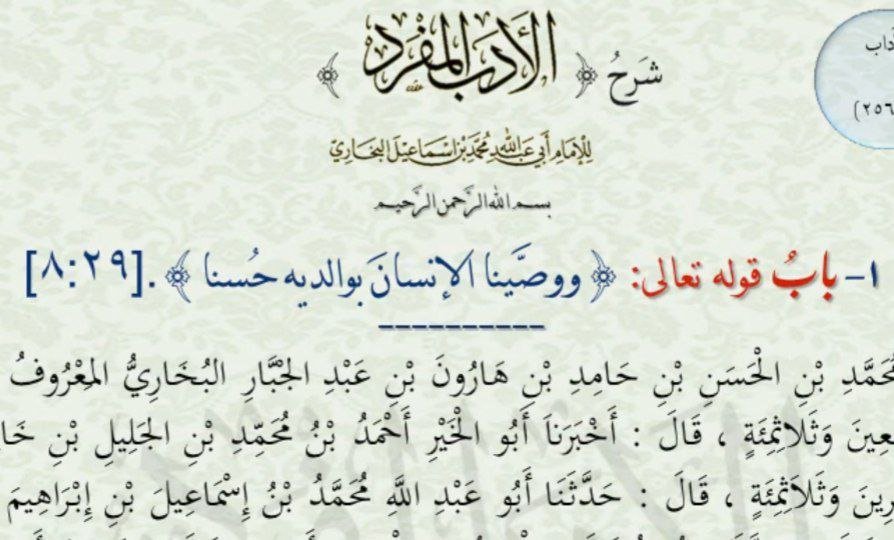 شَرحُ ﴿ الأَدَبِ المُفْرَد ﴾
للإمَام أبي عَبداللهِ مُحَمَّد بْن إسْمَاعيْلَ البُخَاريّ
بسم الله الرَّحمن الرَّحيم
١- بابُ قوله تعالى: ﴿ ووصَّينا الإنسانَ بوالديه حُسنا ﴾.[٨:٢٩]
بْنِ الْحَسَنِ بْنِ حَامِدِ بْنِ هَارُونَ بْنِ عَبْدِ الْجَبَّارِ البُخَارِيُّ المَعْرُوفُ
وَثَلاثِمِئَةٍ ، قَالَ : أَخْبَرَنَا أَبُو الْخَيْرِ أَحْمَدُ بْنُ مُحَمَّدِ بْنِ الجَلِيلِ بْنِ
وَثَلاَثِمِئَةٍ ، قَالَ : حَدَّثَنَا أَبُو عَبْدِ اللَّهِ مُحَمَّدُ بْنُ إِسْمَاعِيلَ بْنِ إِبْرَاهِيمَ